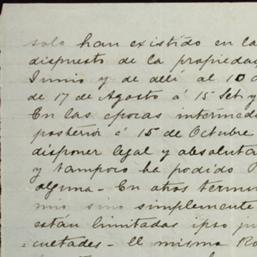 solo han existido en la
dispuesto de la propiedad
Junio y de alli al 10 d
de 17 de Agosto á 15 Set y
En las épocas intermed
posterior é 15 de Octubre
disponer legal y absoluta
y tampoco ha podido
alguna - En otros termin
mio sino simplemente
están limitadas ipso ju
cuetadas - El mismo Ro